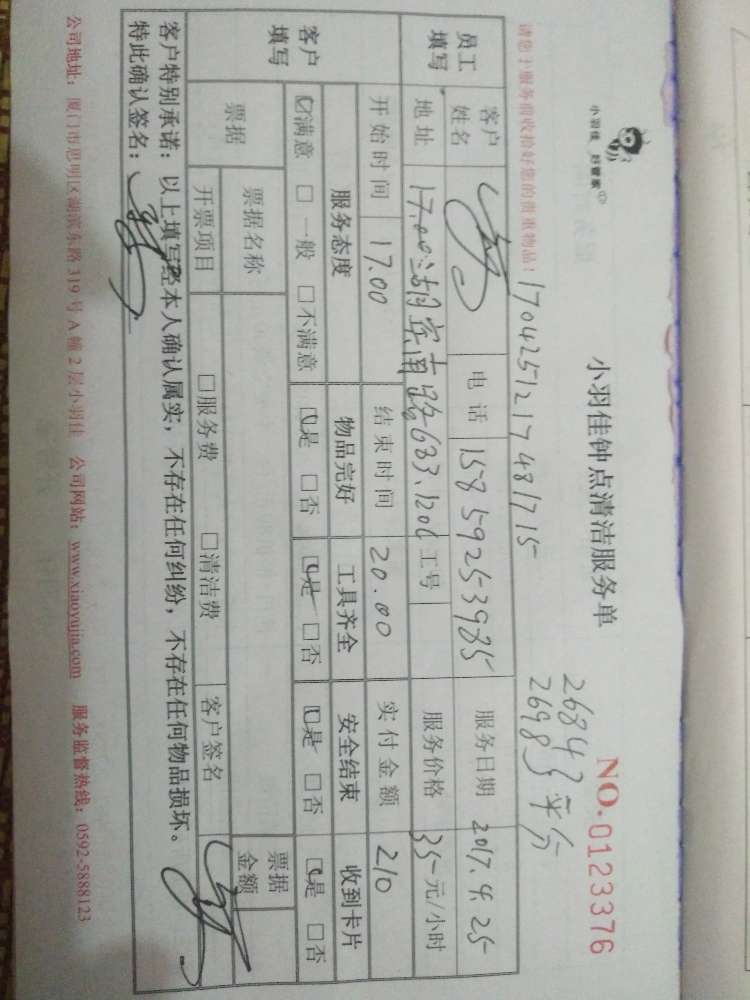 小羽佳 好管家
小羽佳钟点清洁服务单
NO.0123376
请您于服务前收拾好您的贵重物品！
170425121748/715
26843
26983 平分
员工填写 客户姓名 电话 15859253985 服务日期 2017.4.25
地址 17.00 湖宾南路 683.1206 工号 服务价格 35元/小时
客户填写 开始时间 17.00 结束时间 20.00 实付金额 210
服务态度 物品完好 工具齐全 安全结束 收到卡片
☑满意 □一般 □不满意 ☑是 □否 ☑是 □否 ☑是 □否 ☑是 □否
票据 票据名称 票据金额
开票项目 □服务费 □清洁费 客户签名
客户特别承诺：以上填写经本人确认属实，不存在任何纠纷，不存在任何物品损坏。
特此确认签名：
公司地址：厦门市思明区湖滨东路 319 号 A 幢 2 层小羽佳 公司网站：www.xiaoyujia.com 服务监督热线：0592-5888123